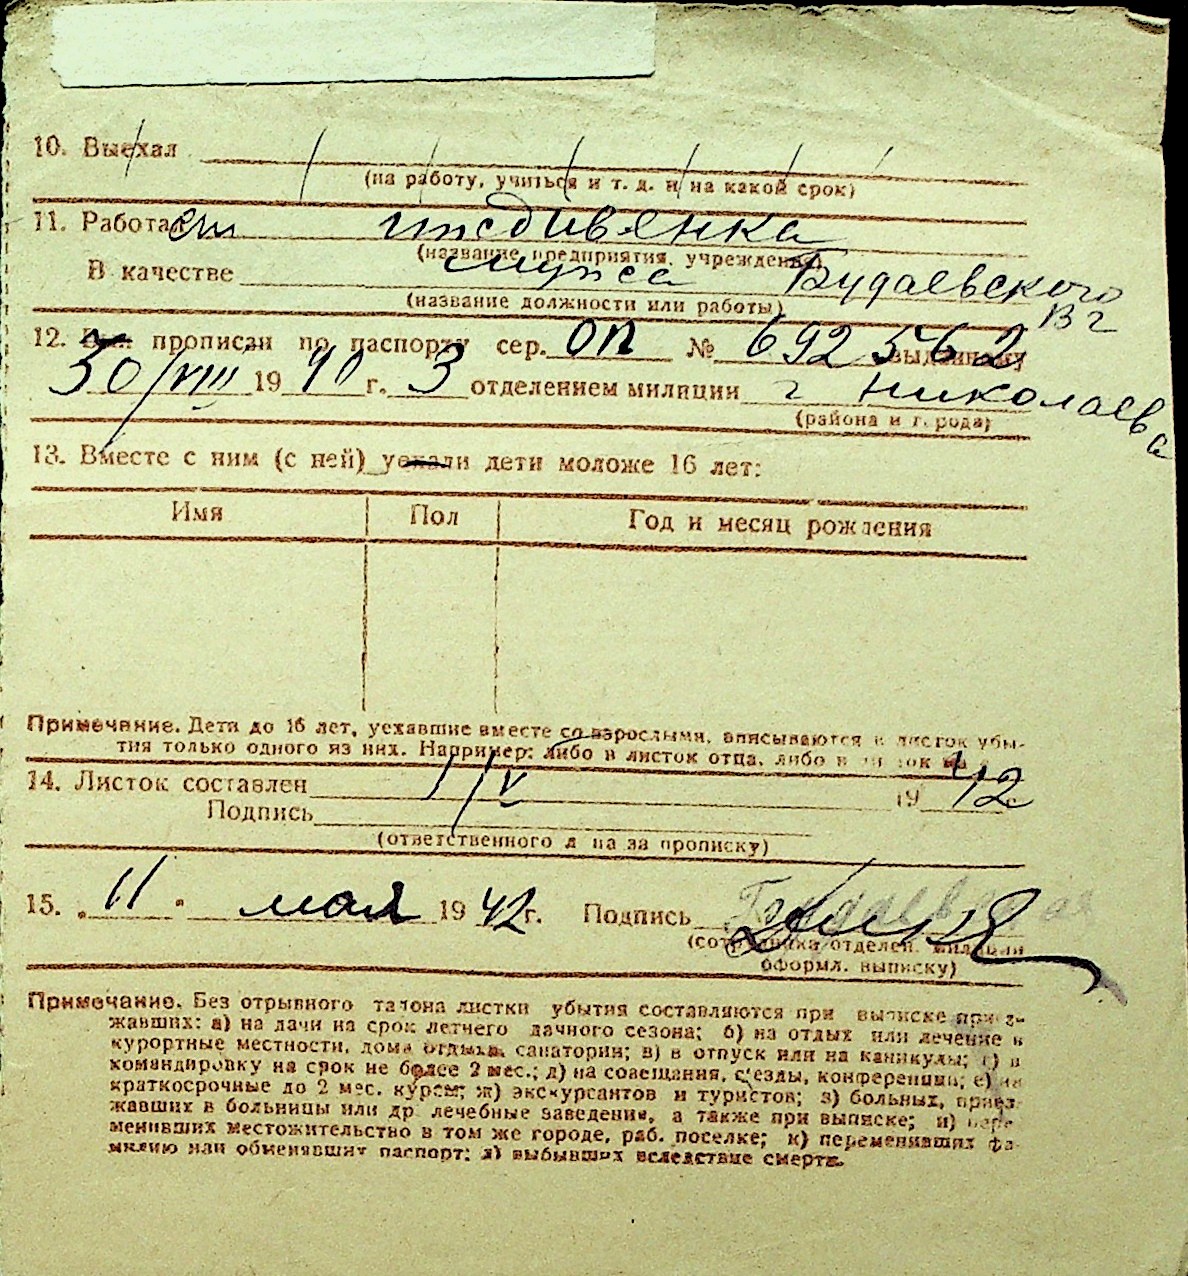 10. Выехал
(на работу, учиться и т. д. и на какой срок)
11. Работает иждивенка
(название предприятия, учреждения)
В качестве мужа Будаевского
(название должности или работы) В г
12. прописан по паспорту сер. ОП № 692562 выданному
30/VIII 1940 г. 3 отделением милиции г Николаева
(района и города)
13. Вместе с ним (с ней) уехали дети моложе 16 лет:
Имя Пол Год и месяц рождения
Примечание. Дети до 16 лет, уехавшие вместе со взрослыми, вписываются в листок убы-
тия только одного из них. Например: либо в листок отца, либо в листок
14. Листок составлен 1/V 1942
Подпись
(ответственного лица за прописку)
15. „11" мая 1942 г. Подпись Будаевская
(сотрудника отделен. милиции
оформл. выписку)
Примечание. Без отрывного талона листки убытия составляются при выписке приез-
жавших: а) на дачи на срок летнего дачного сезона; б) на отдых или лечение в
курортные местности, дома отдыха, санатории; в) в отпуск или на каникулы; г) в
командировку на срок не более 2 мес.; д) на совещания, съезды, конференции; е) на
краткосрочные до 2 мес. курсы; ж) экскурсантов и туристов; з) больных, приез-
жавших в больницы или др. лечебные заведения, а также при выписке; и) пере-
менивших местожительство в том же городе, раб. поселке; к) переменивших фа-
милию или обменявших паспорт; л) выбывших вследствие смерти.